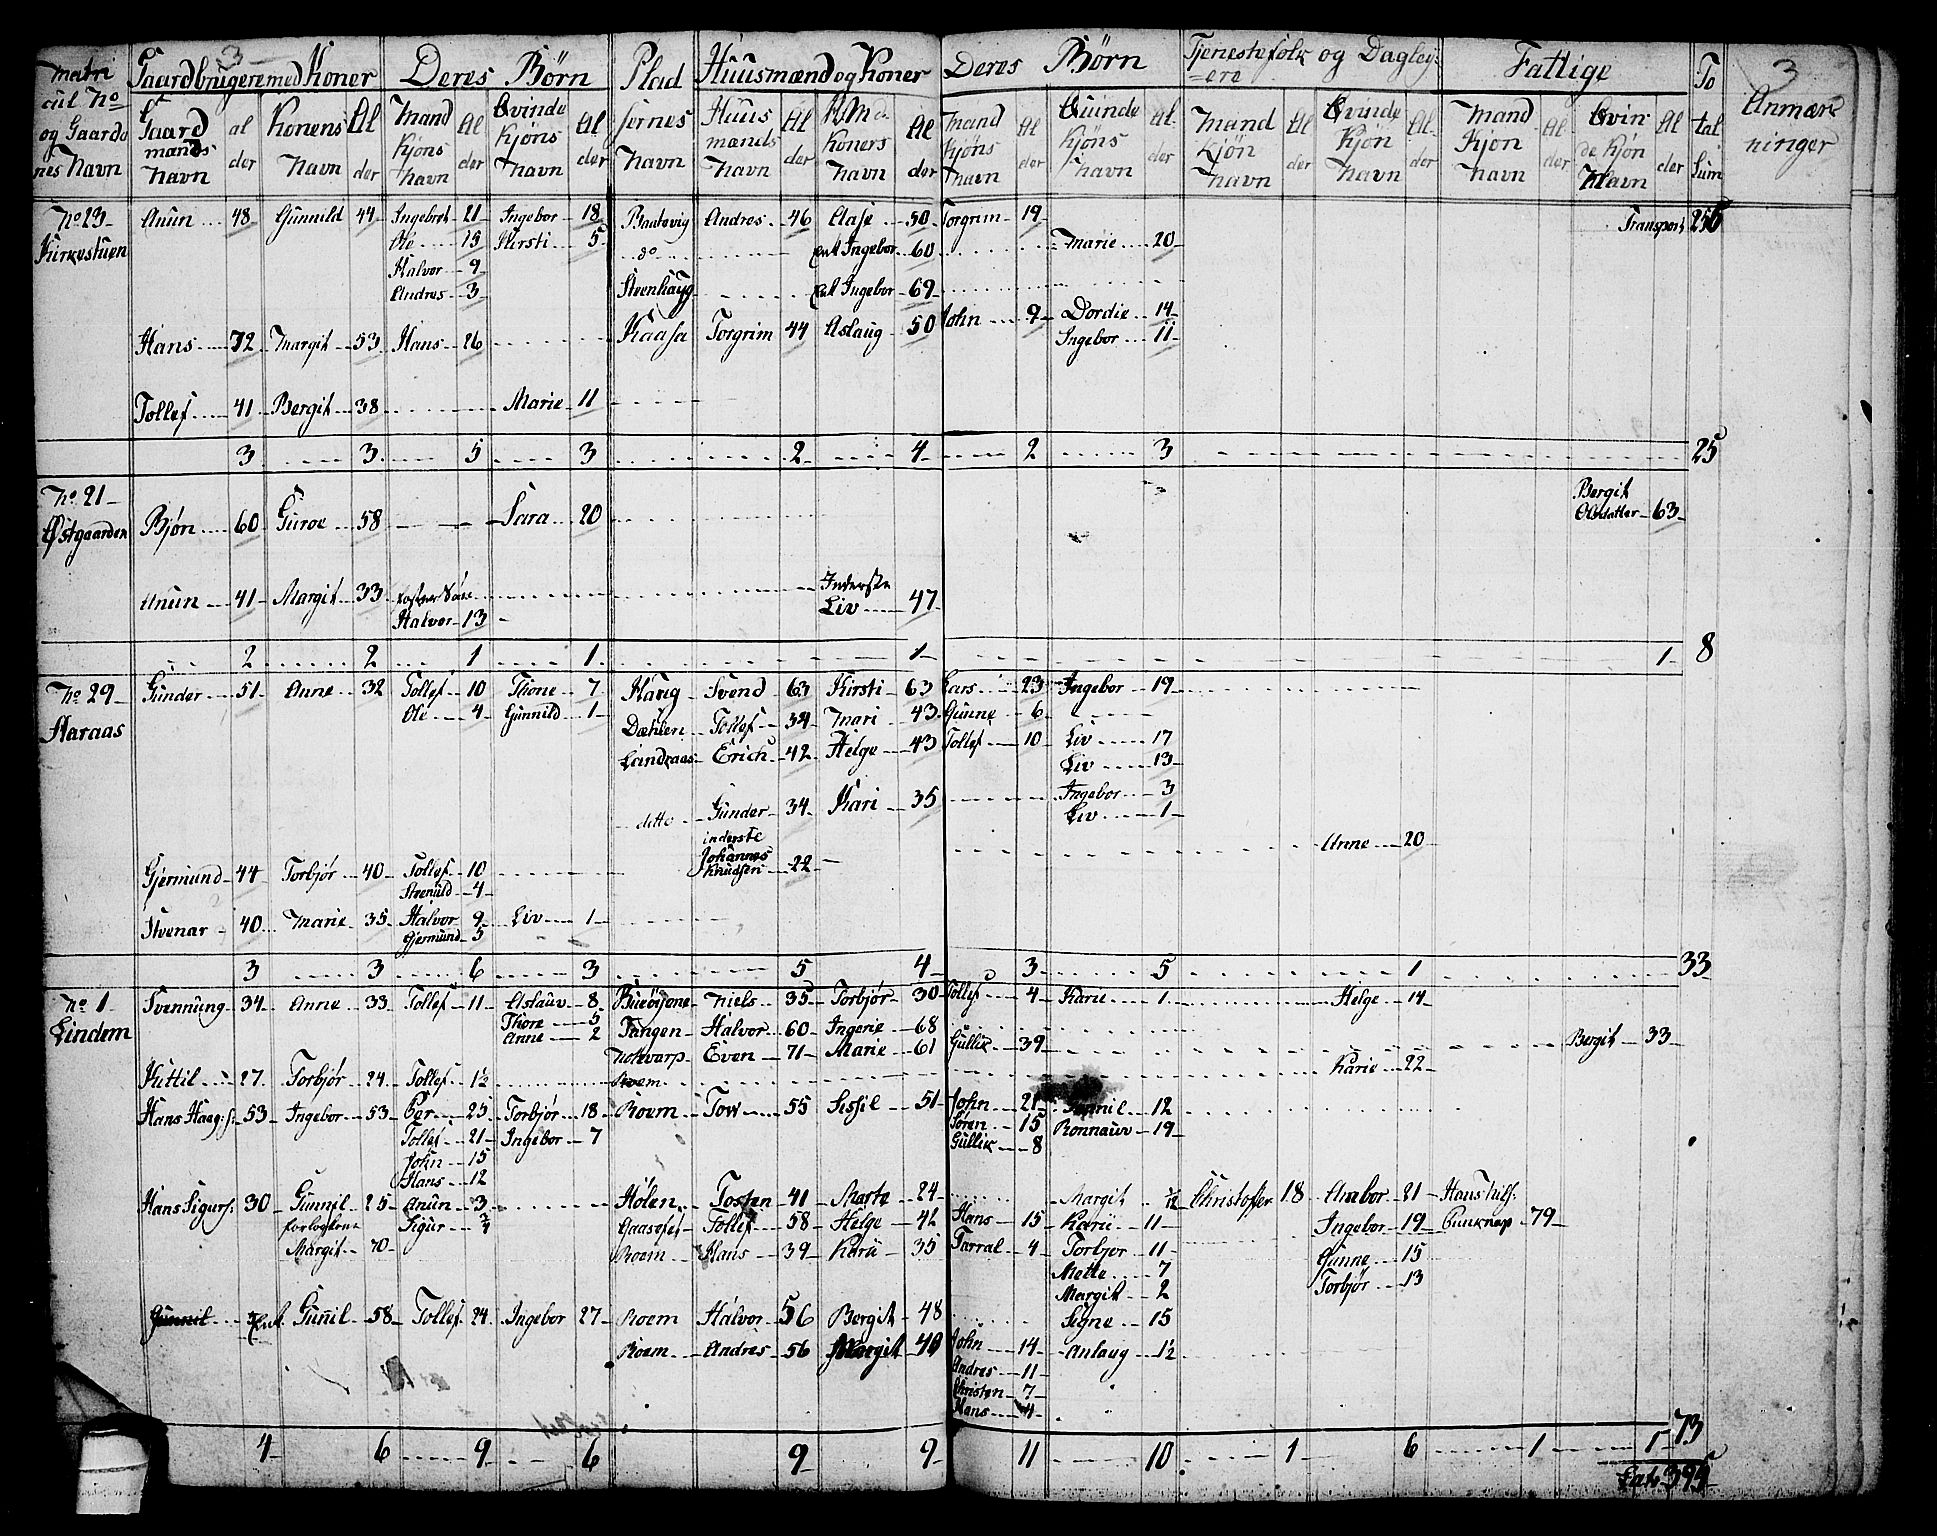 3
Matri cul No og Gaardenes Navn | Gaardbrugere med Koner | Deres Børn | Pladsernes Navn | Huusmænd og Koner | Deres Børn | Tjenestefolk og Dagleyere | Fattige | Total Sum | 3 Anmærkninger
Gaardmands Navn | Alder | Konens Navn | Alder | Mandkjøns Navn | Alder | Qvindekjøns Navn | Alder | Huusmænds Navn | Alder | Koners Navn | Alder | Mandkjøns Navn | Alder | Qvindekjøns Navn | Alder | Mandkjøn Navn | Alder | Qvindekjøn Navn | Alder | Mandkjøn Navn | Alder | Qvindekjøn Navn | Alder
No 23 Anun 48 Gunnild 44 Ingebret 21 Ingebor 18 Andres 46 Aase 50 Torgrim 19 Transport 256
Kirkestuen Ole 15 Kirsti 5 do Enk Ingebor 60 Marie 20
Halvor 9
Andres 3 Steenhaug Enk Ingebor 69
Hans 72 Margit 53 Hans 26 Kaasa Torgrim 44 Aslaug 50 John 9 Dordie 14
Ingebor 11
Tollef 41 Bergit 38 Marie 11
3 3 5 3 2 4 2 3 25
No 21 Bergit
Østgaarden Bjøn 60 Guroe 58 Sara 20 Olsdatter 63
Anun 41 Margit 33 Inderste
Halvor 13 Liv 47
2 2 1 1 1 1 8
No 29 Gunder 51 Anne 32 Tollef 10 Thone 7 Haug Svend 63 Kirsti 63 Lars 23 Ingebor 19
Haraas Ole 4 Gunnild 1 Dæhlen Tollef 34 Mari 43 Gunne 6
Lindraas Erich 42 Helge 43 Tollef 10 Liv 17
Liv 13
ditto Gunder 34 Kari 35 Ingebor 3
Liv 1
inderste Anne 20
Gjermund 44 Torbjør 40 Tollef 10 Johannes
Knudsen 22
Svenuld 4
Stvenar 40 Marie 35 Halvor 9 Liv 1
Gjermund 5
3 3 6 3 5 4 3 5 1 33
No 1 Svennung 34 Anne 33 Tollef 11 Aslauv 8 Niels 35 Torbjør 30 Tollef 4 Karie 1 Helge 14
Lindem Thore 5 Tangen Halvor 60 Ingerie 68
Anne 2 Notvarp Even 71 Marie 61 Gullik 39 Bergit 33
Kittil 27 Torbjør 24 Tollef 1½ Roem Karie 22
Hans Haag:s: 53 Ingebor 53 Per 25 Torbjør 18 Roem Tow 55 Sissil 51 John 21 Gunnil 12
Tollef 21 Ingebor 7 Søren 15 Ronnauv 19
John 15 Gullik 8
Hans 12
Hans Sigurs: 30 Gunnil 25 Anun 3 Hølen Tosten 41 Marte 24 Margit 1/12 Christoffer 18 Anbor 21 Hans
Sigur ¾ Gaasefet Tollef 58 Helge 42 Hans 15 Karii 11 Ingebor 19 79
Margit 70 Roem Hans 39 Karii 35 Tarral 4 Torbjør 11 Gunne 15
Mette 7 Torbjør 13
Margit 2
Gunnil Enk Gunil 58 Tollef 24 Ingebor 27 Roem Halvor 56 Bergit 48 Signe 15
Roem Andres 56 Margit 40 John 14 Anlaug 1½
Andres 11
Christen 7
Hans 4
4 6 9 6 9 9 11 10 1 6 1 1 73
Lat: 395